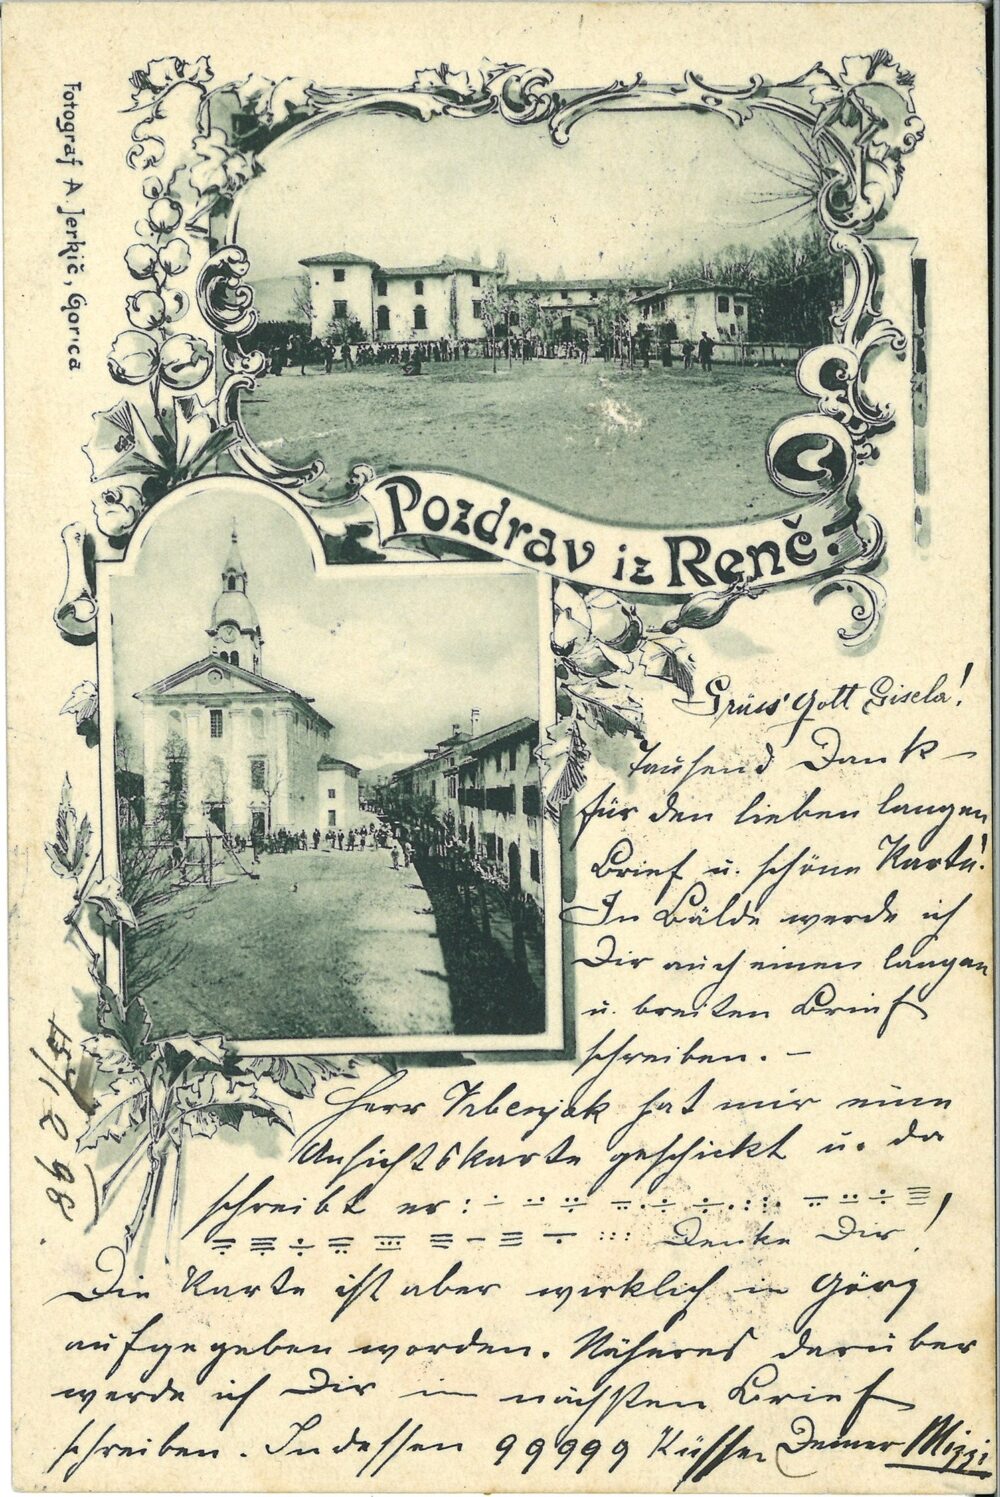 Fotograf A. Jerkič, Gorica
Pozdrav iz Renč.
Grüss Gott Gisela!
Tausend Dank –
für den lieben langen
Brief u. schöne Karte!
In Bälde werde ich
Dir auch einen langen
u. breiten Brief
schreiben. –
Herr Vrbenjak hat mir eine
Ansichtskarte geschickt u. da
schreibt er:
Denke Dir!
Die Karte ist aber wirklich in Görz
aufgegeben worden. Näheres darüber
werde ich Dir im nächsten Brief
schreiben. Indessen 99999 Küsse Deiner Mizzi
98.